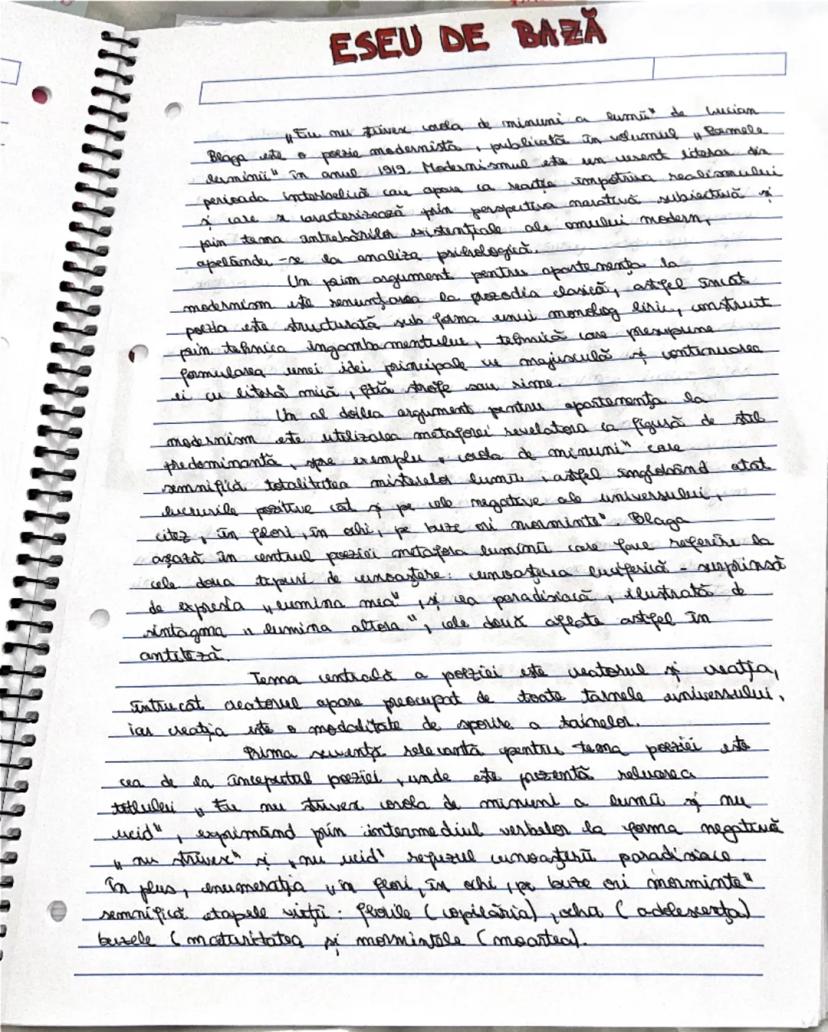 ESEU DE BAZĂ
„Eu nu strivesc corola de minuni a lumii" de Lucian
Blaga este o poezie modernistă, publicată în volumul „Poemele
luminii" în anul 1919. Modernismul este un curent literar din
perioada interbelică care apare ca reacție împotriva realismului
și care se caracterizează prin perspectiva narativă subiectivă și
prin tema întrebărilor existențiale ale omului modern,
apelându-se la analiza psihologică.
Un prim argument pentru apartenența la
modernism este renunțarea la prozodia clasică, astfel încât
poezia este structurată sub forma unui monolog liric, construit
prin tehnica ingambamentului, tehnică care presupune
formularea unei idei principale cu majusculă și continuarea
ei cu literă mică, fără strofe sau rime.
Un al doilea argument pentru apartenența la
modernism este utilizarea metaforei revelatorii ca figură de stil
predominantă, spre exemplu „corola de minuni" care
semnifică totalitatea misterelor lumii, astfel înglobând atât
lucrurile pozitive cât și pe cele negative ale universului,
citez „în flori, în ochi, pe buze ori morminte" Blaga
așază în centrul poeziei metafora luminii care face referire la
cele doua tipuri de cunoaștere: cunoașterea luciferică - surprinsă
de expresia „lumina mea", și cea paradisiacă, ilustrată de
sintagma „lumina altora", cele două aflate astfel în
antiteză.
Tema centrală a poeziei este creatorul și creația,
întrucât creatorul apare preocupat de toate tainele universului,
iar creația este o modalitate de sporire a tainelor.
Prima secvență relevantă pentru tema poeziei este
cea de la începutul poeziei, unde este prezentă reluarea
titlului „Eu nu strivesc corola de minuni a lumii și nu
ucid", exprimând prin intermediul verbelor la forma negativă
„nu strivesc" și „nu ucid" refuzul cunoașterii paradisiace.
În plus, enumerația „în flori, în ochi, pe buze ori morminte"
semnifică etapele vieții: florile (copilăria), ochii (adolescența)
buzele (maturitatea și mormintele (moartea).